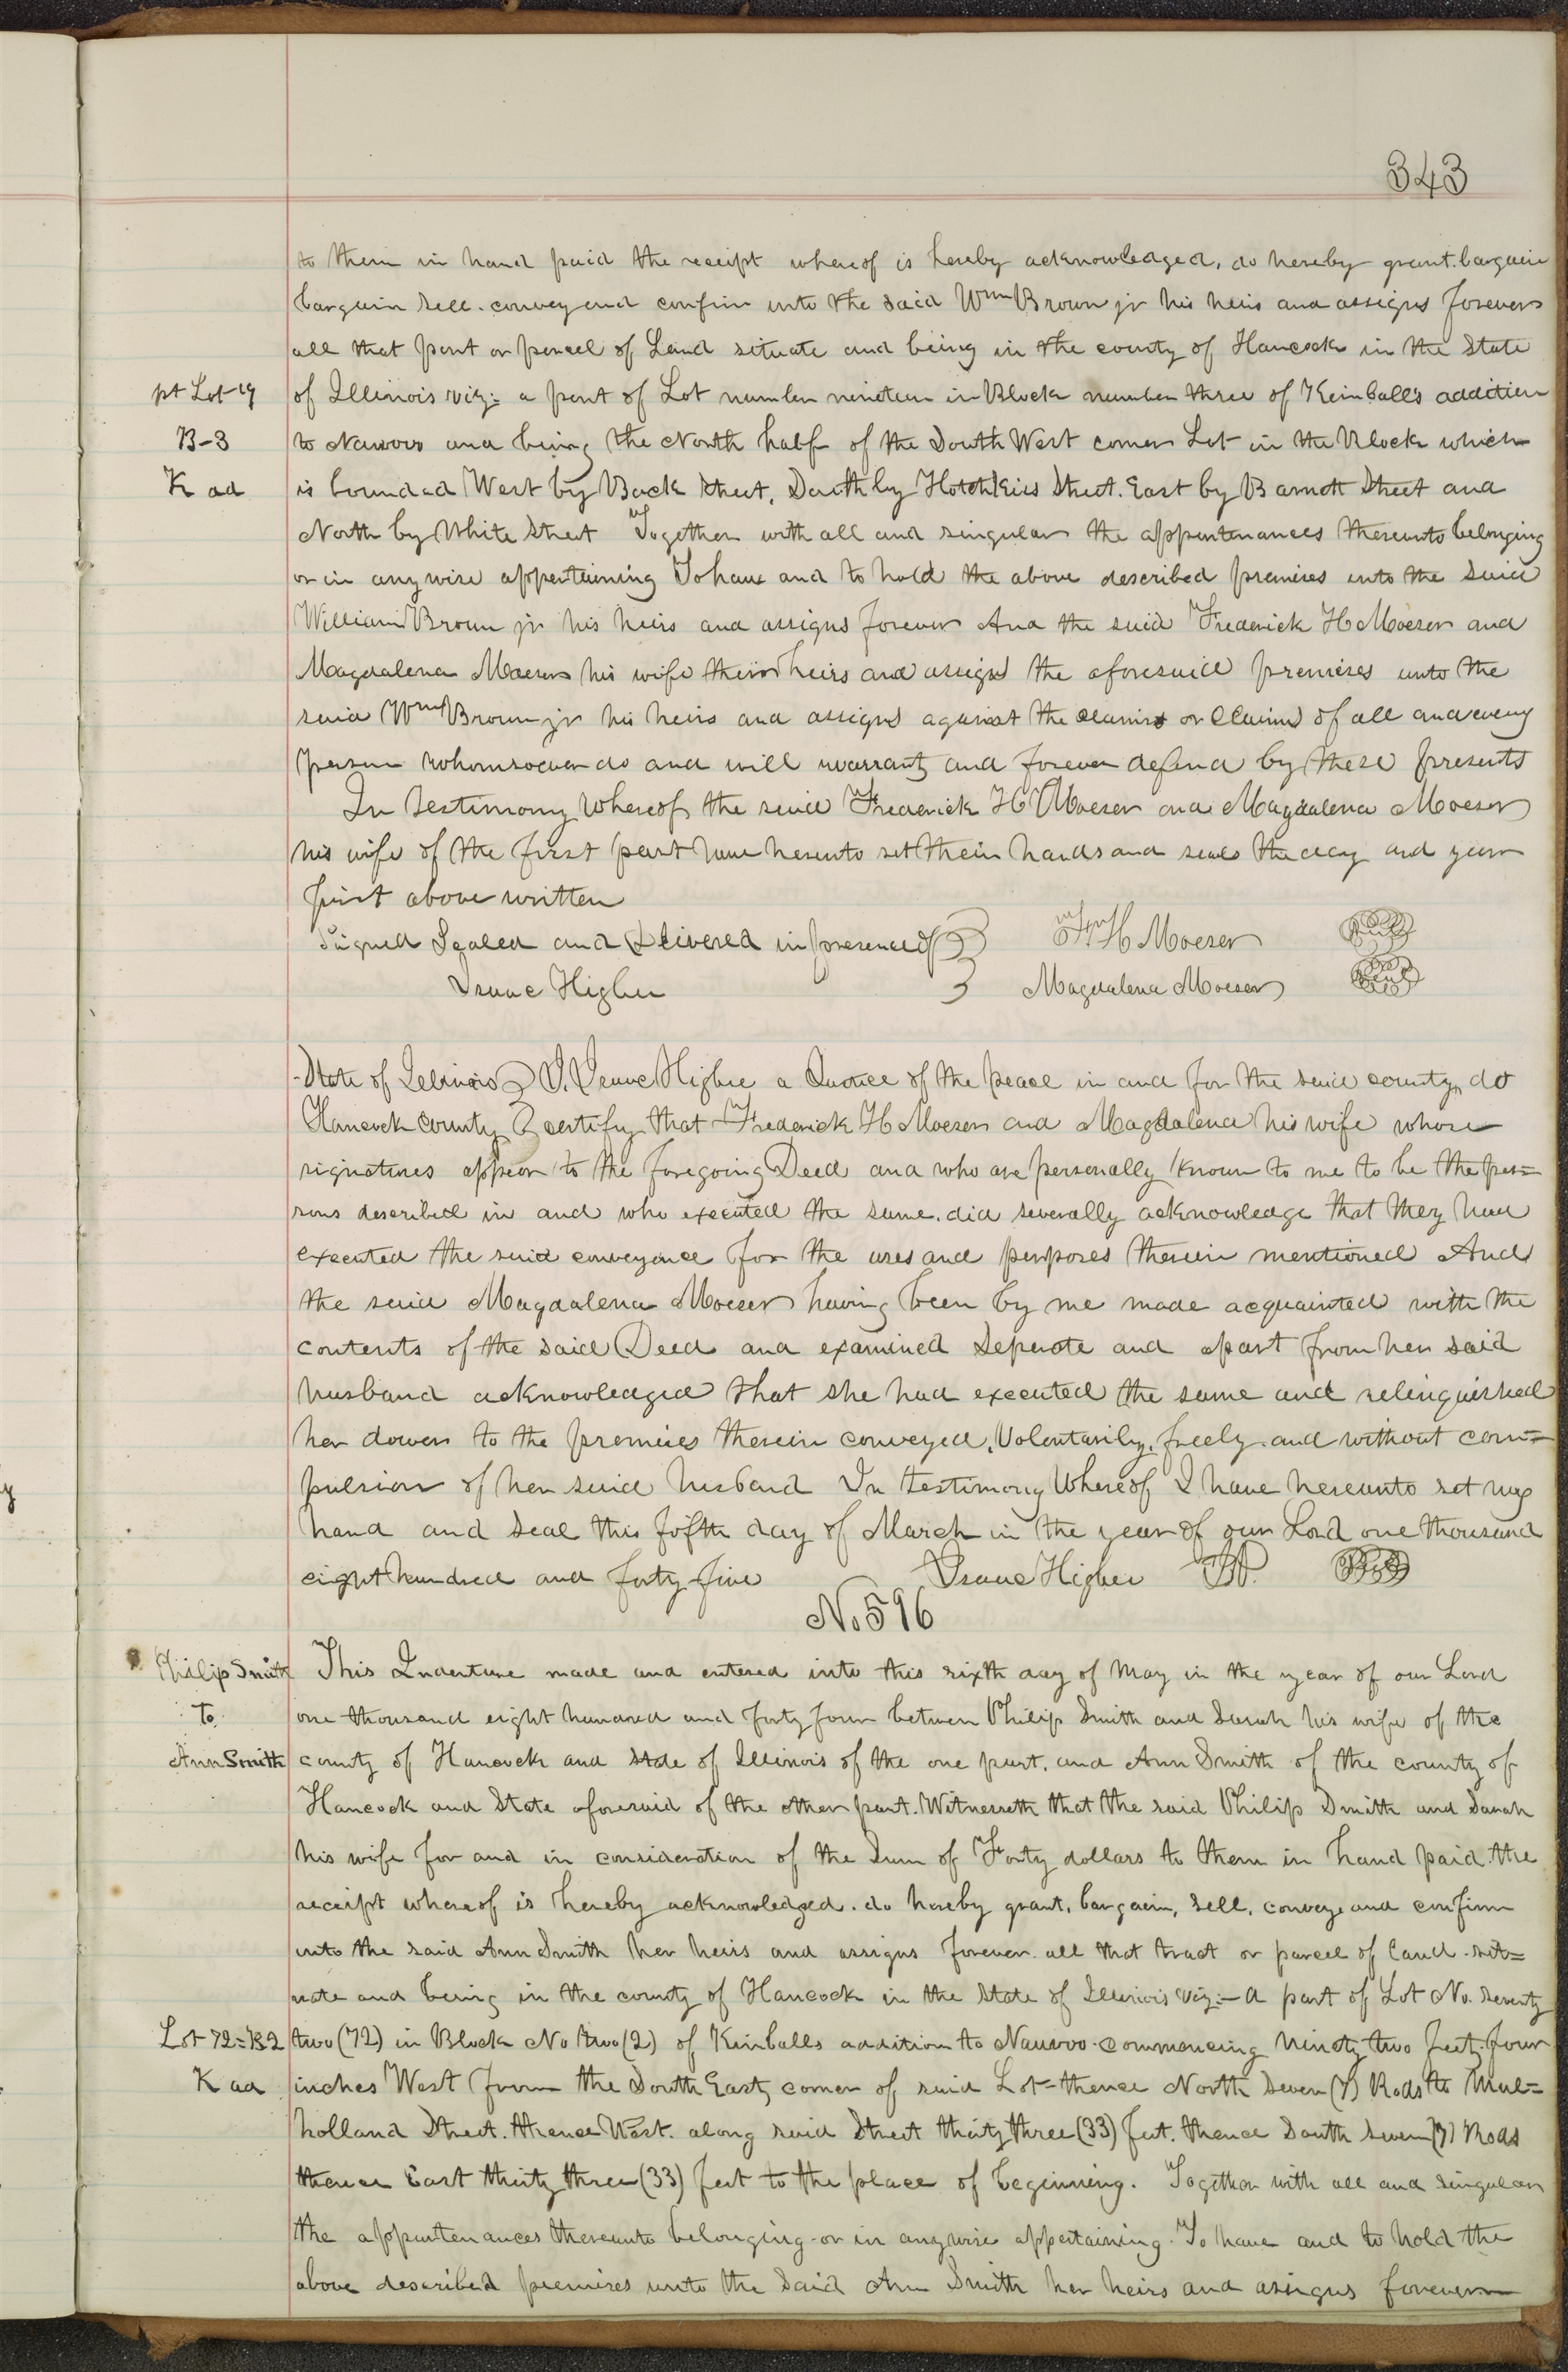 343
to them in hand paid the receipt whereof is hereby acknowledged, do hereby grant. bargain
bargain sell. convey and confirm unto the said Wm Brown jr his heirs and assigns forever
all that part or parcel of Land situate and being in the county of Hancock in the State
pt Lot 19 of Illinois viz: a part of Lot number nineteen in Block number three of Kimball's addition
B-3 to Nauvoo and being the North half of the South West corner Lot in the Block which
K ad is bounded West by Back street, South by Hotchkiss Street. East by Barnett Street and
North by White Street Together with all and singular the appurtenances thereunto belonging
or in any wise appertaining To have and to hold the above described premises unto the said
William Brown jr his heirs and assigns forever And the said Frederick H Moeser and
Magdalena Moeser his wife their heirs and assigns the aforesaid premises unto the
said Wm Brown jr his heirs and assigns against the claims or Claims of all and every
person whomsoever do and will warrant and forever defend by these presents
In Testimony Whereof the said Frederick H Moeser and Magdalena Moeser
his wife of the first part have hereunto set their hands and seals the day and year
first above written
Signed Sealed and Delivered in presence of Fr H Moeser Seal
Isaac Higbee Magdalena Moeser Seal
State of Illinois I, Isaac Higbee a Justice of the peace in and for the said county, do
Hancock County certify that Frederick H Moeser and Magdalena his wife whose
signatures appear to the foregoing Deed and who are personally known to me to be the per=
sons described in and who executed the same. did severally acknowledge that they have
executed the said conveyance for the uses and purposes therein mentioned And
the said Magdalena Moeser having been by me made acquainted with the
contents of the said Deed and examined Seperate and apart from her said
husband acknowledged that she had executed the same and relinquished
her dower to the premises therein conveyed, Voluntarily, freely. and without com=
pulsion of her said husband In testimony Whereof I have hereunto set my
hand and seal this fifth day of March in the year of our Lord one thousand
eight hundred and forty five Isaac Higbee JP. Seal
No 596
Philip Smith This Indenture made and entered into this sixth day of May in the year of our Lord
To one thousand eight hundred and forty four between Philip Smith and Sarah his wife of the
Ann Smith county of Hancock and State of Illinois of the one part, and Ann Smith of the county of
Hancock and State aforesaid of the other part. Witnesseth that the said Philip Smith and Sarah
his wife for and in consideration of the Sum of Forty dollars to them in hand paid. the
receipt whereof is hereby acknowledged. do hereby grant, bargain, sell, convey and confirm
unto the said Ann Smith her heirs and assigns forever. all that tract or parcel of land. sit=
uate and being in the county of Hancock in the State of Illinois viz:- a part of Lot No. Seventy
Lot 72=B2 two (72) in Block No two (2) of Kimballs addition to Nauvoo. commencing ninety two feet, four
K ad inches West from the South East corner of said Lot = thence North Seven (7) Rods to Mul=
holland Street. thence West. along said Street thirty three (33) feet. thence South Seven (7) Rods
thence East thirty three (33) feet to the place of beginning. Together with all and singular
the appurtenances thereunto belonging or in anywise appertaining. To have and to hold the
above described premises unto the said Ann Smith her heirs and assigns forever